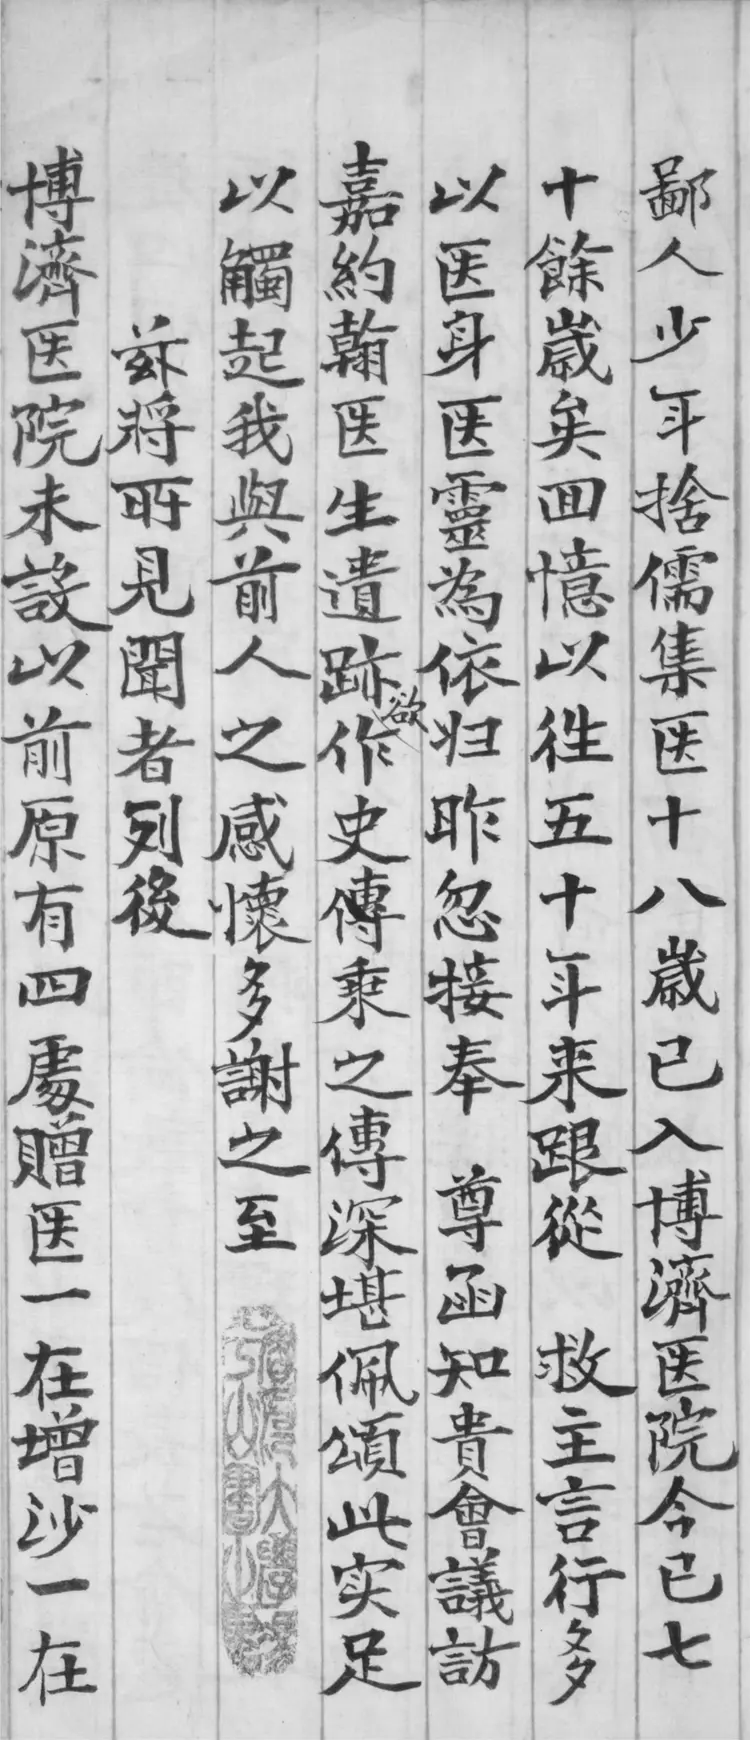 鄙人少年捨儒集医十八歳已入博濟医院今已七
十餘歳矣回憶以徃五十年来跟從　救主言行多
以医身医靈為依归昨忽接奉　尊函知貴會議訪
欲
嘉約翰医生遺跡作史傳乘之傳深堪佩頌此实足
以觸起我與前人之感懷多謝之至
茲將所見聞者列後
博濟医院未設以前原有四處贈医一在增沙一在